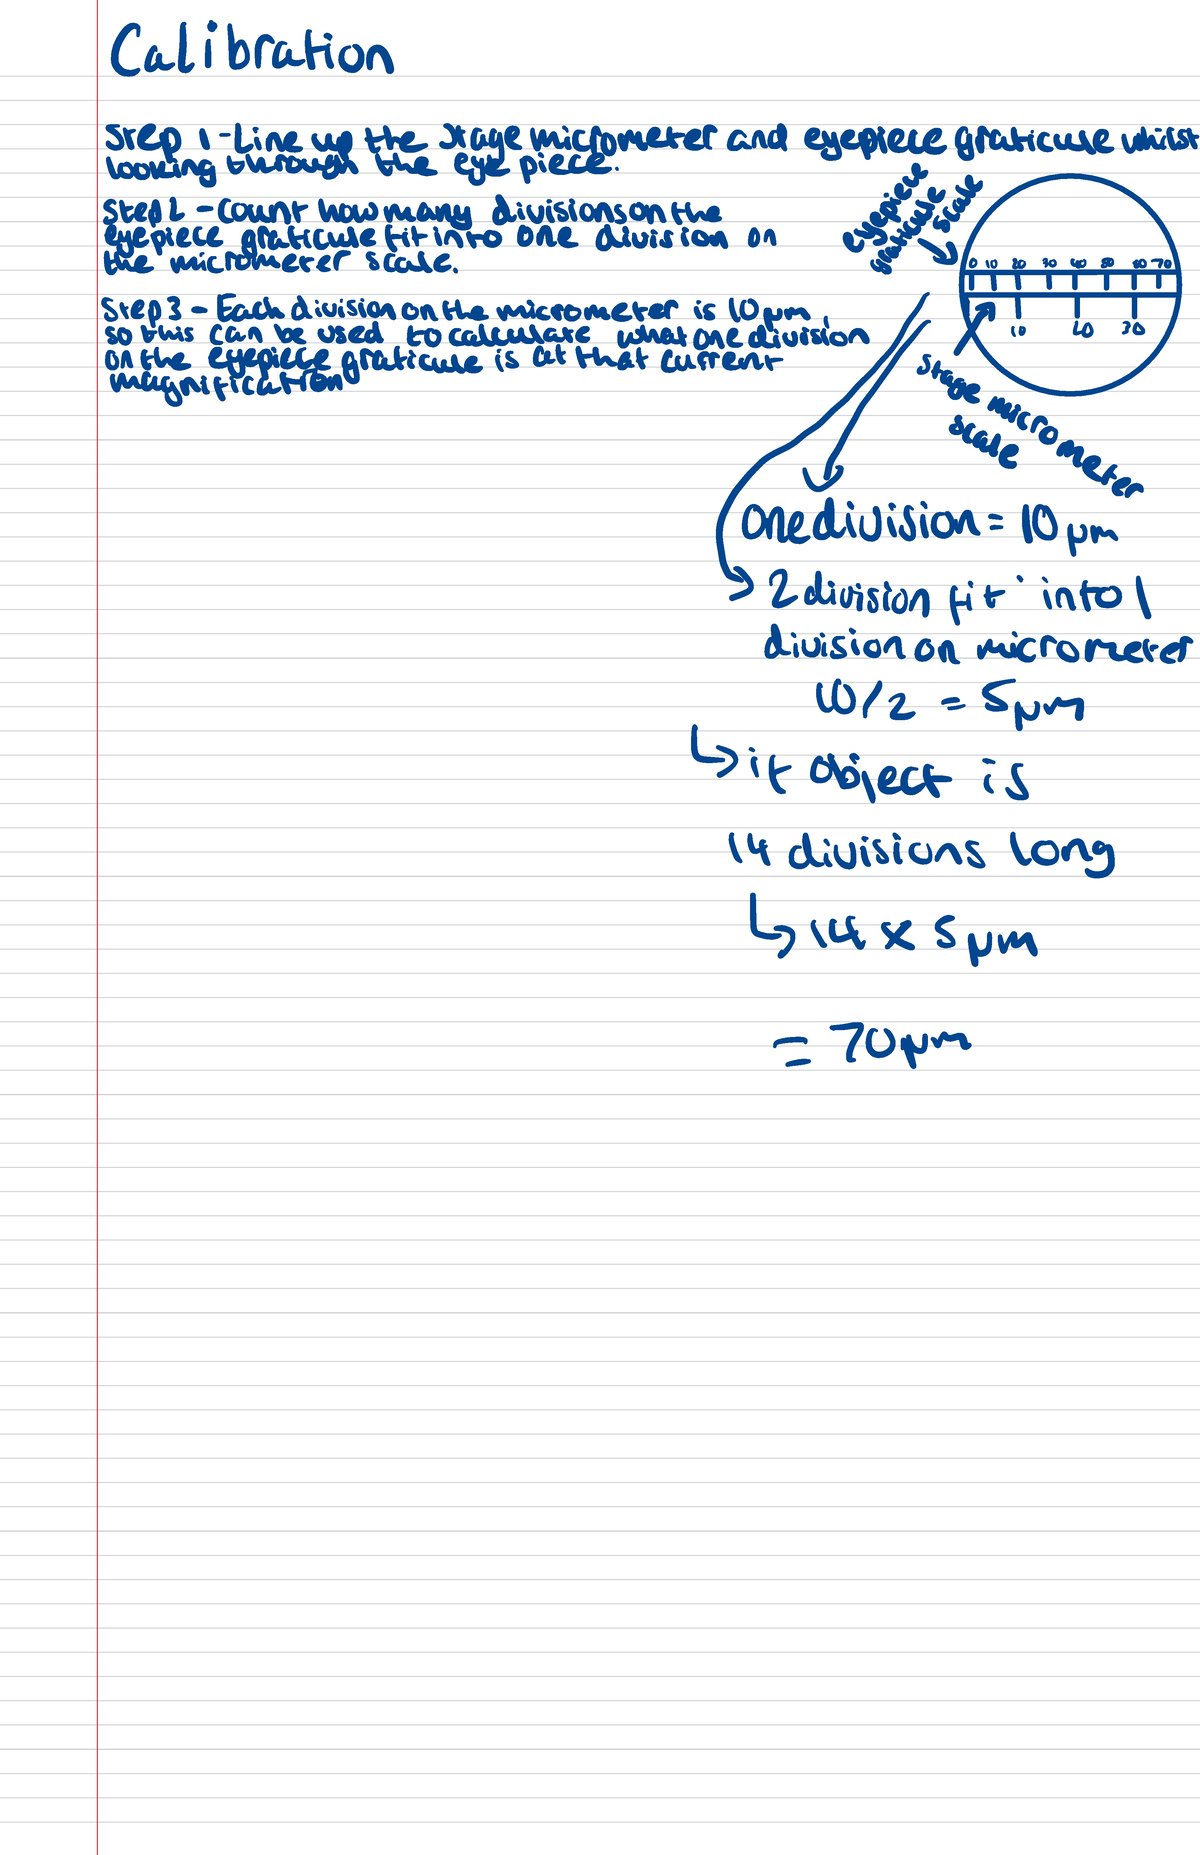 Calibration
Step 1 - Line up the stage micrometer and eyepiece graticule whilst
looking through the eye piece.
Step 2 - Count how many divisions on the
eyepiece graticule fit into one division on
the micrometer scale.
Step 3 - Each division on the micrometer is 10 µm,
so this can be used to calculate what one division
on the eyepiece graticule is at that current
magnification
eyepiece
graticule
scale
0 10 20 30 40 50 60 70
10
stage micrometer
scale
one division = 10 µm
2 division fit into 1
division on micrometer
10/2 = 5 µm
if object is
14 divisions long
14 x 5 µm
= 70 µm